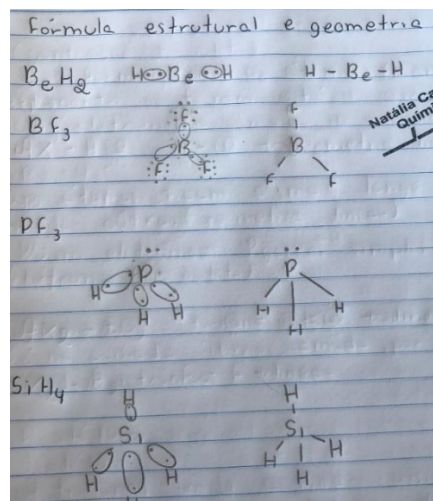 Fórmula estrutural e geometria
BeH2 H Be H H - Be - H
BF3
F
B
F F
F
B
F F
Natália Ca
Quími
PF3
P
H H H
P
H H H
SiH4
H
Si
H H
H
Si
H H H